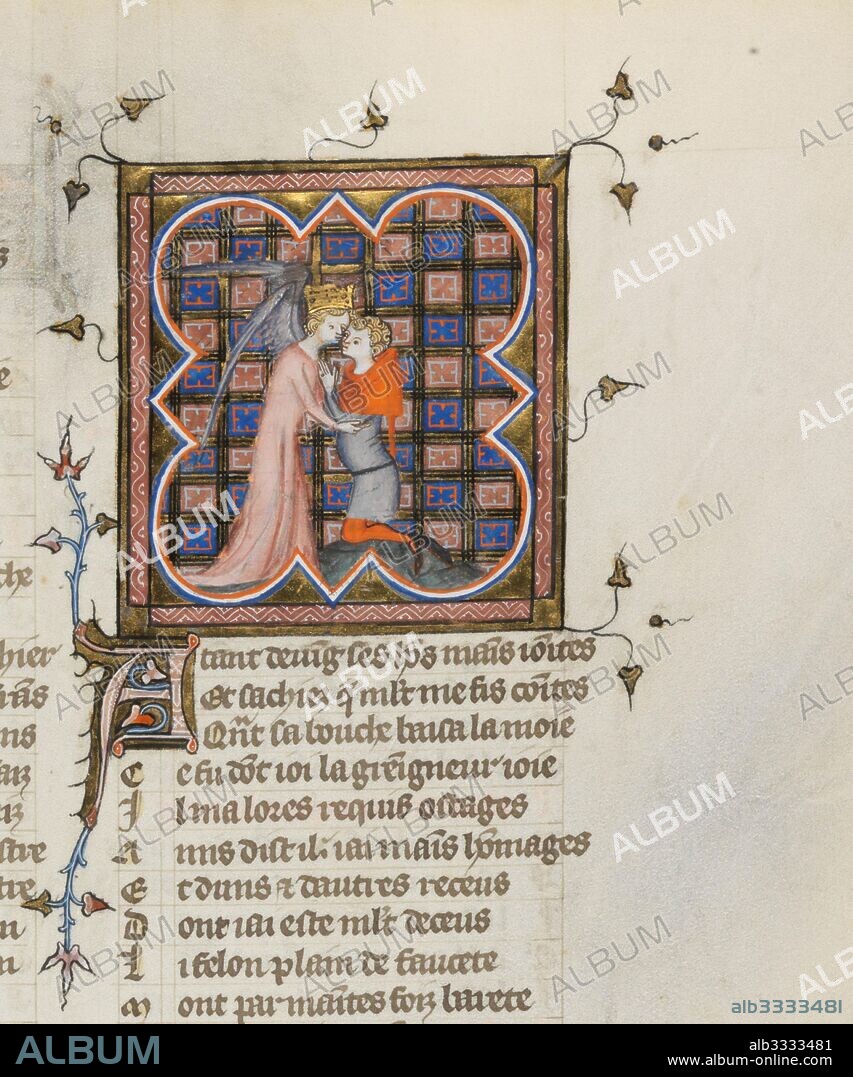 Atant deuig ses hōs mais iointes
Et sachiez q̄ mlt me fis cointes
Qn̄t sa bouche baisa la moie
Ce fu dōt ioi la greigneur ioie
Il ma lores requis ostages
Amis dist il iai mais hōmages
Et duns & dautres receus
Dont iai este mlt deceus
Li felon plain de faucete
Mont par maintes foiz barete
s
e
che
hier
ns
arz
rz
stre
tre
n
n
ALBUM
alb3333481
alb3333481
www.album-online.com